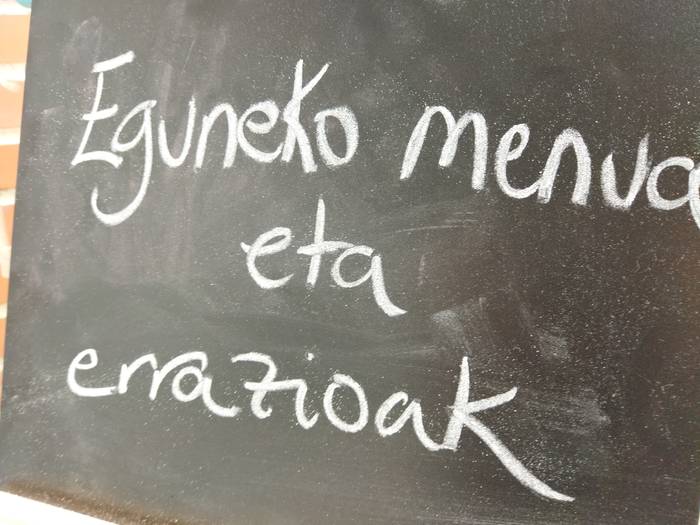 Eguneko menua
eta
errazioak